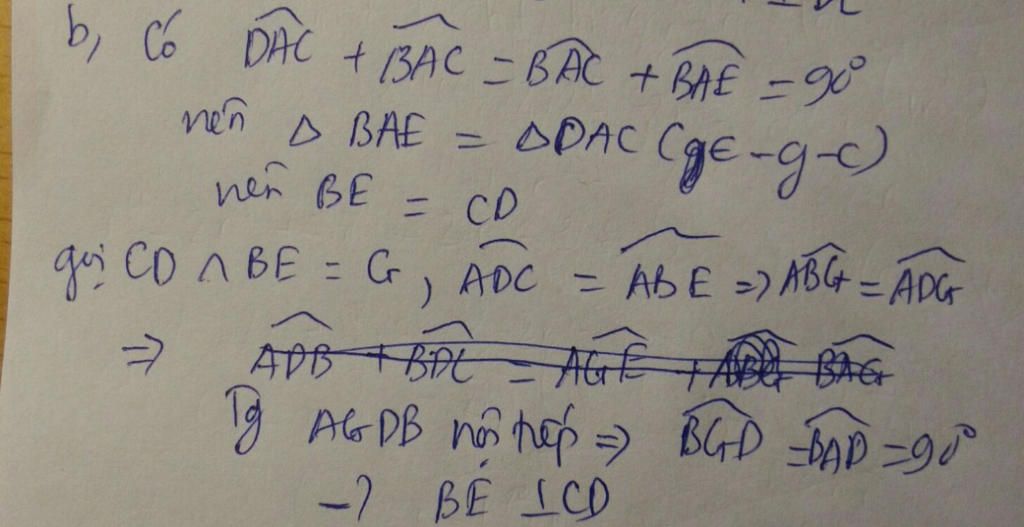 b, Có \widehat{DAC} + \widehat{BAC} = \widehat{BAC} + \widehat{BAE} = 90°
nên Δ BAE = Δ DAC (c-g-c)
nên BE = CD
gọi CD ∩ BE = G, \widehat{ADC} = \widehat{ABE} => \widehat{ABG} = \widehat{ADG}
=> \widehat{ADB} + \widehat{BDC} = \widehat{AGE} + \widehat{BAG}
Tg AGDB nội tiếp => \widehat{BGD} = \widehat{BAD} = 90°
-> BE ⊥ CD